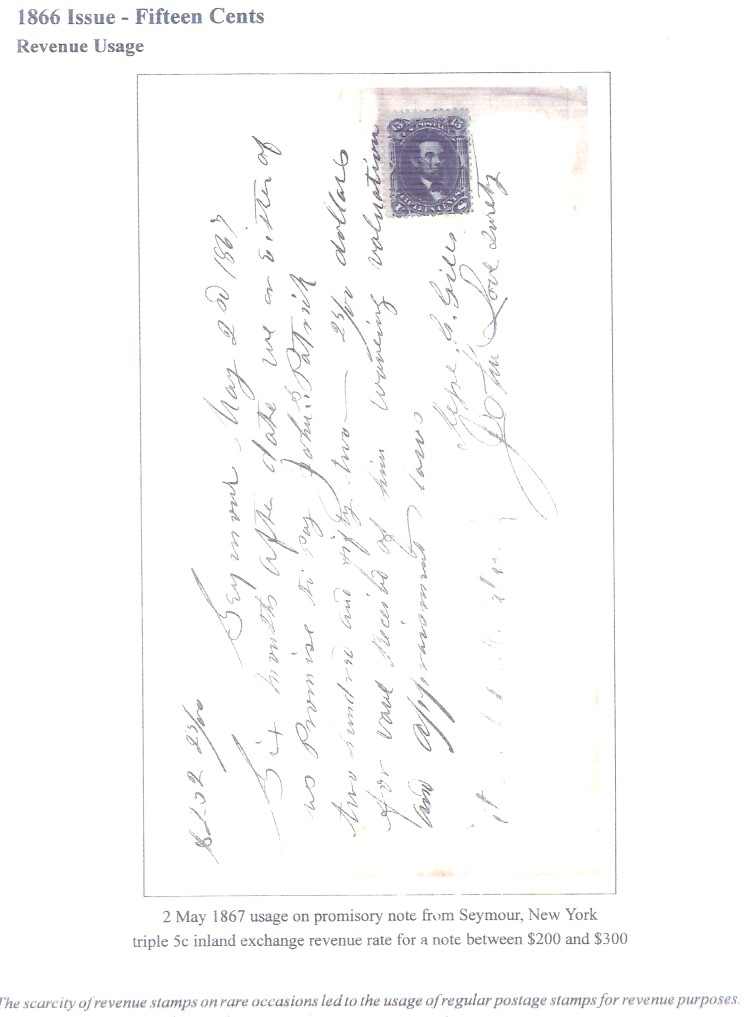 1866 Issue - Fifteen Cents
Revenue Usage
$252 25/100
Seymour May 2nd 1867
Six months after date we or Either of
us Promise to pay John Patrick
two hundred and fifty two — 25/100 dollars
for value Received of him waiveing valuation
and appraisement laws
John Love Surety
15 U.S. POSTAGE 15
FIFTEEN CENTS
2 May 1867 usage on promisory note from Seymour, New York
triple 5c inland exchange revenue rate for a note between $200 and $300
The scarcity of revenue stamps on rare occasions led to the usage of regular postage stamps for revenue purposes.